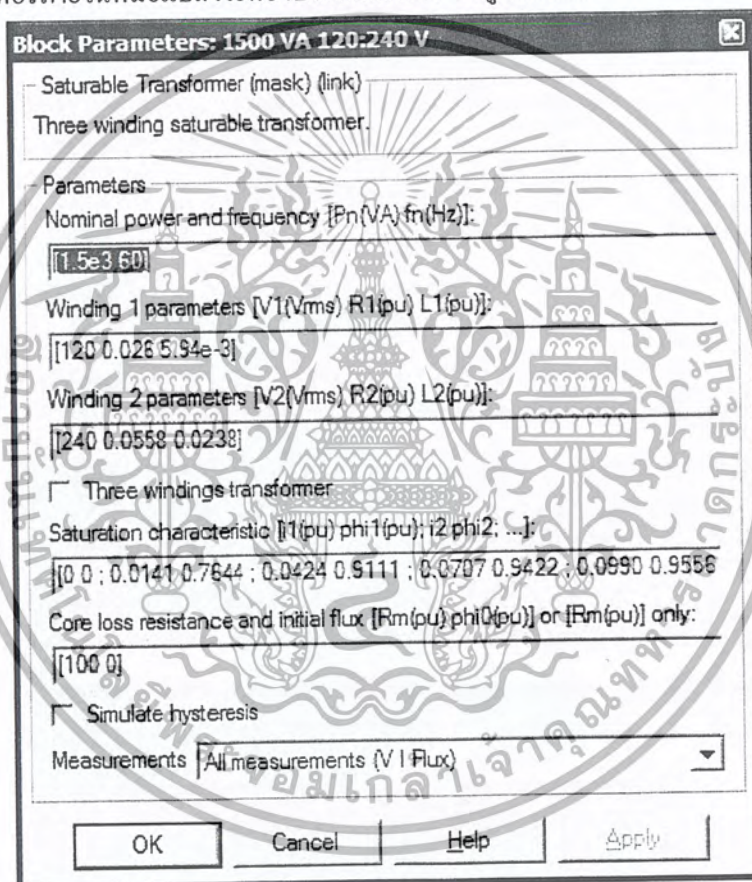 Block Parameters: 1500 VA 120:240 V
Saturable Transformer (mask) (link)
Three winding saturable transformer.
Parameters
Nominal power and frequency [Pn(VA) fn(Hz)]:
[1.5e3 60]
Winding 1 parameters [V1(Vrms) R1(pu) L1(pu)]:
[120 0.026 5.94e-3]
Winding 2 parameters [V2(Vrms) R2(pu) L2(pu)]:
[240 0.0558 0.0238]
Three windings transformer
Saturation characteristic [i1(pu) phi1(pu); i2 phi2; ...]:
[0 0 ; 0.0141 0.7644 ; 0.0424 0.9111 ; 0.0707 0.9422 ; 0.0990 0.9556
Core loss resistance and initial flux [Rm(pu) phi0(pu)] or [Rm(pu)] only:
[100 0]
Simulate hysteresis
Measurements All measurements (V I Flux)
OK Cancel Help Apply